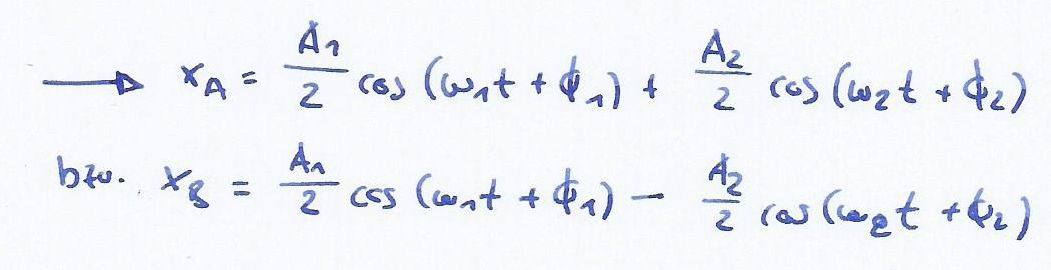 → x_A = A₁/2 cos (ω₁t + ϕ₁) + A₂/2 cos (ω₂t + ϕ₂)
bzw. x_B = A₁/2 cos (ω₁t + ϕ₁) − A₂/2 cos (ω₂t + ϕ₂)